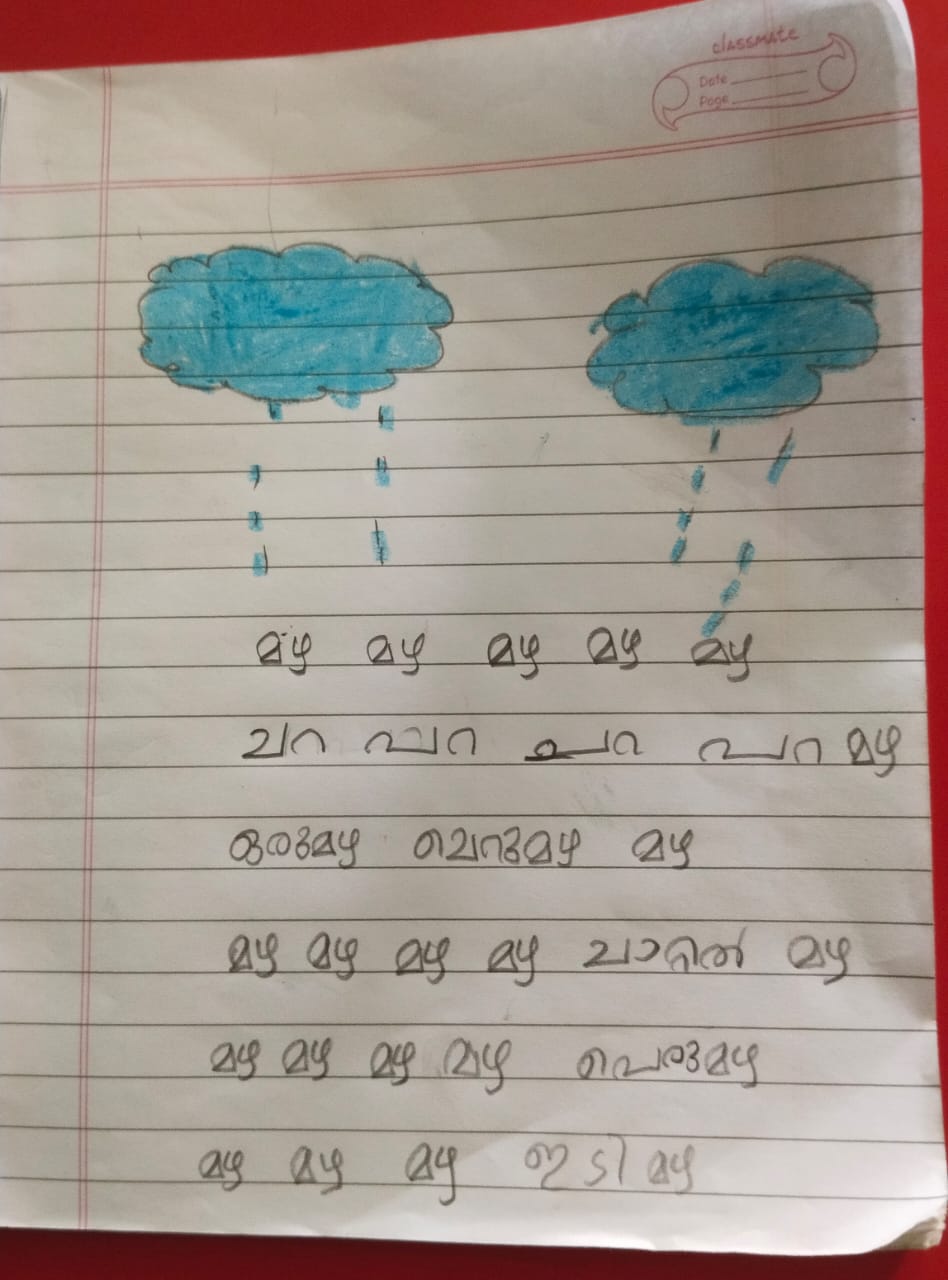 classmate
Date
Page
മഴ മഴ മഴ മഴ മഴ
ചറ പറ ചറ പറ മഴ
ഒരുമഴ പെരുമഴ മഴ
മഴ മഴ മഴ മഴ ചാറ്റൽ മഴ
മഴ മഴ മഴ മഴ പെരുമഴ
മഴ മഴ മഴ ഇടി മഴ